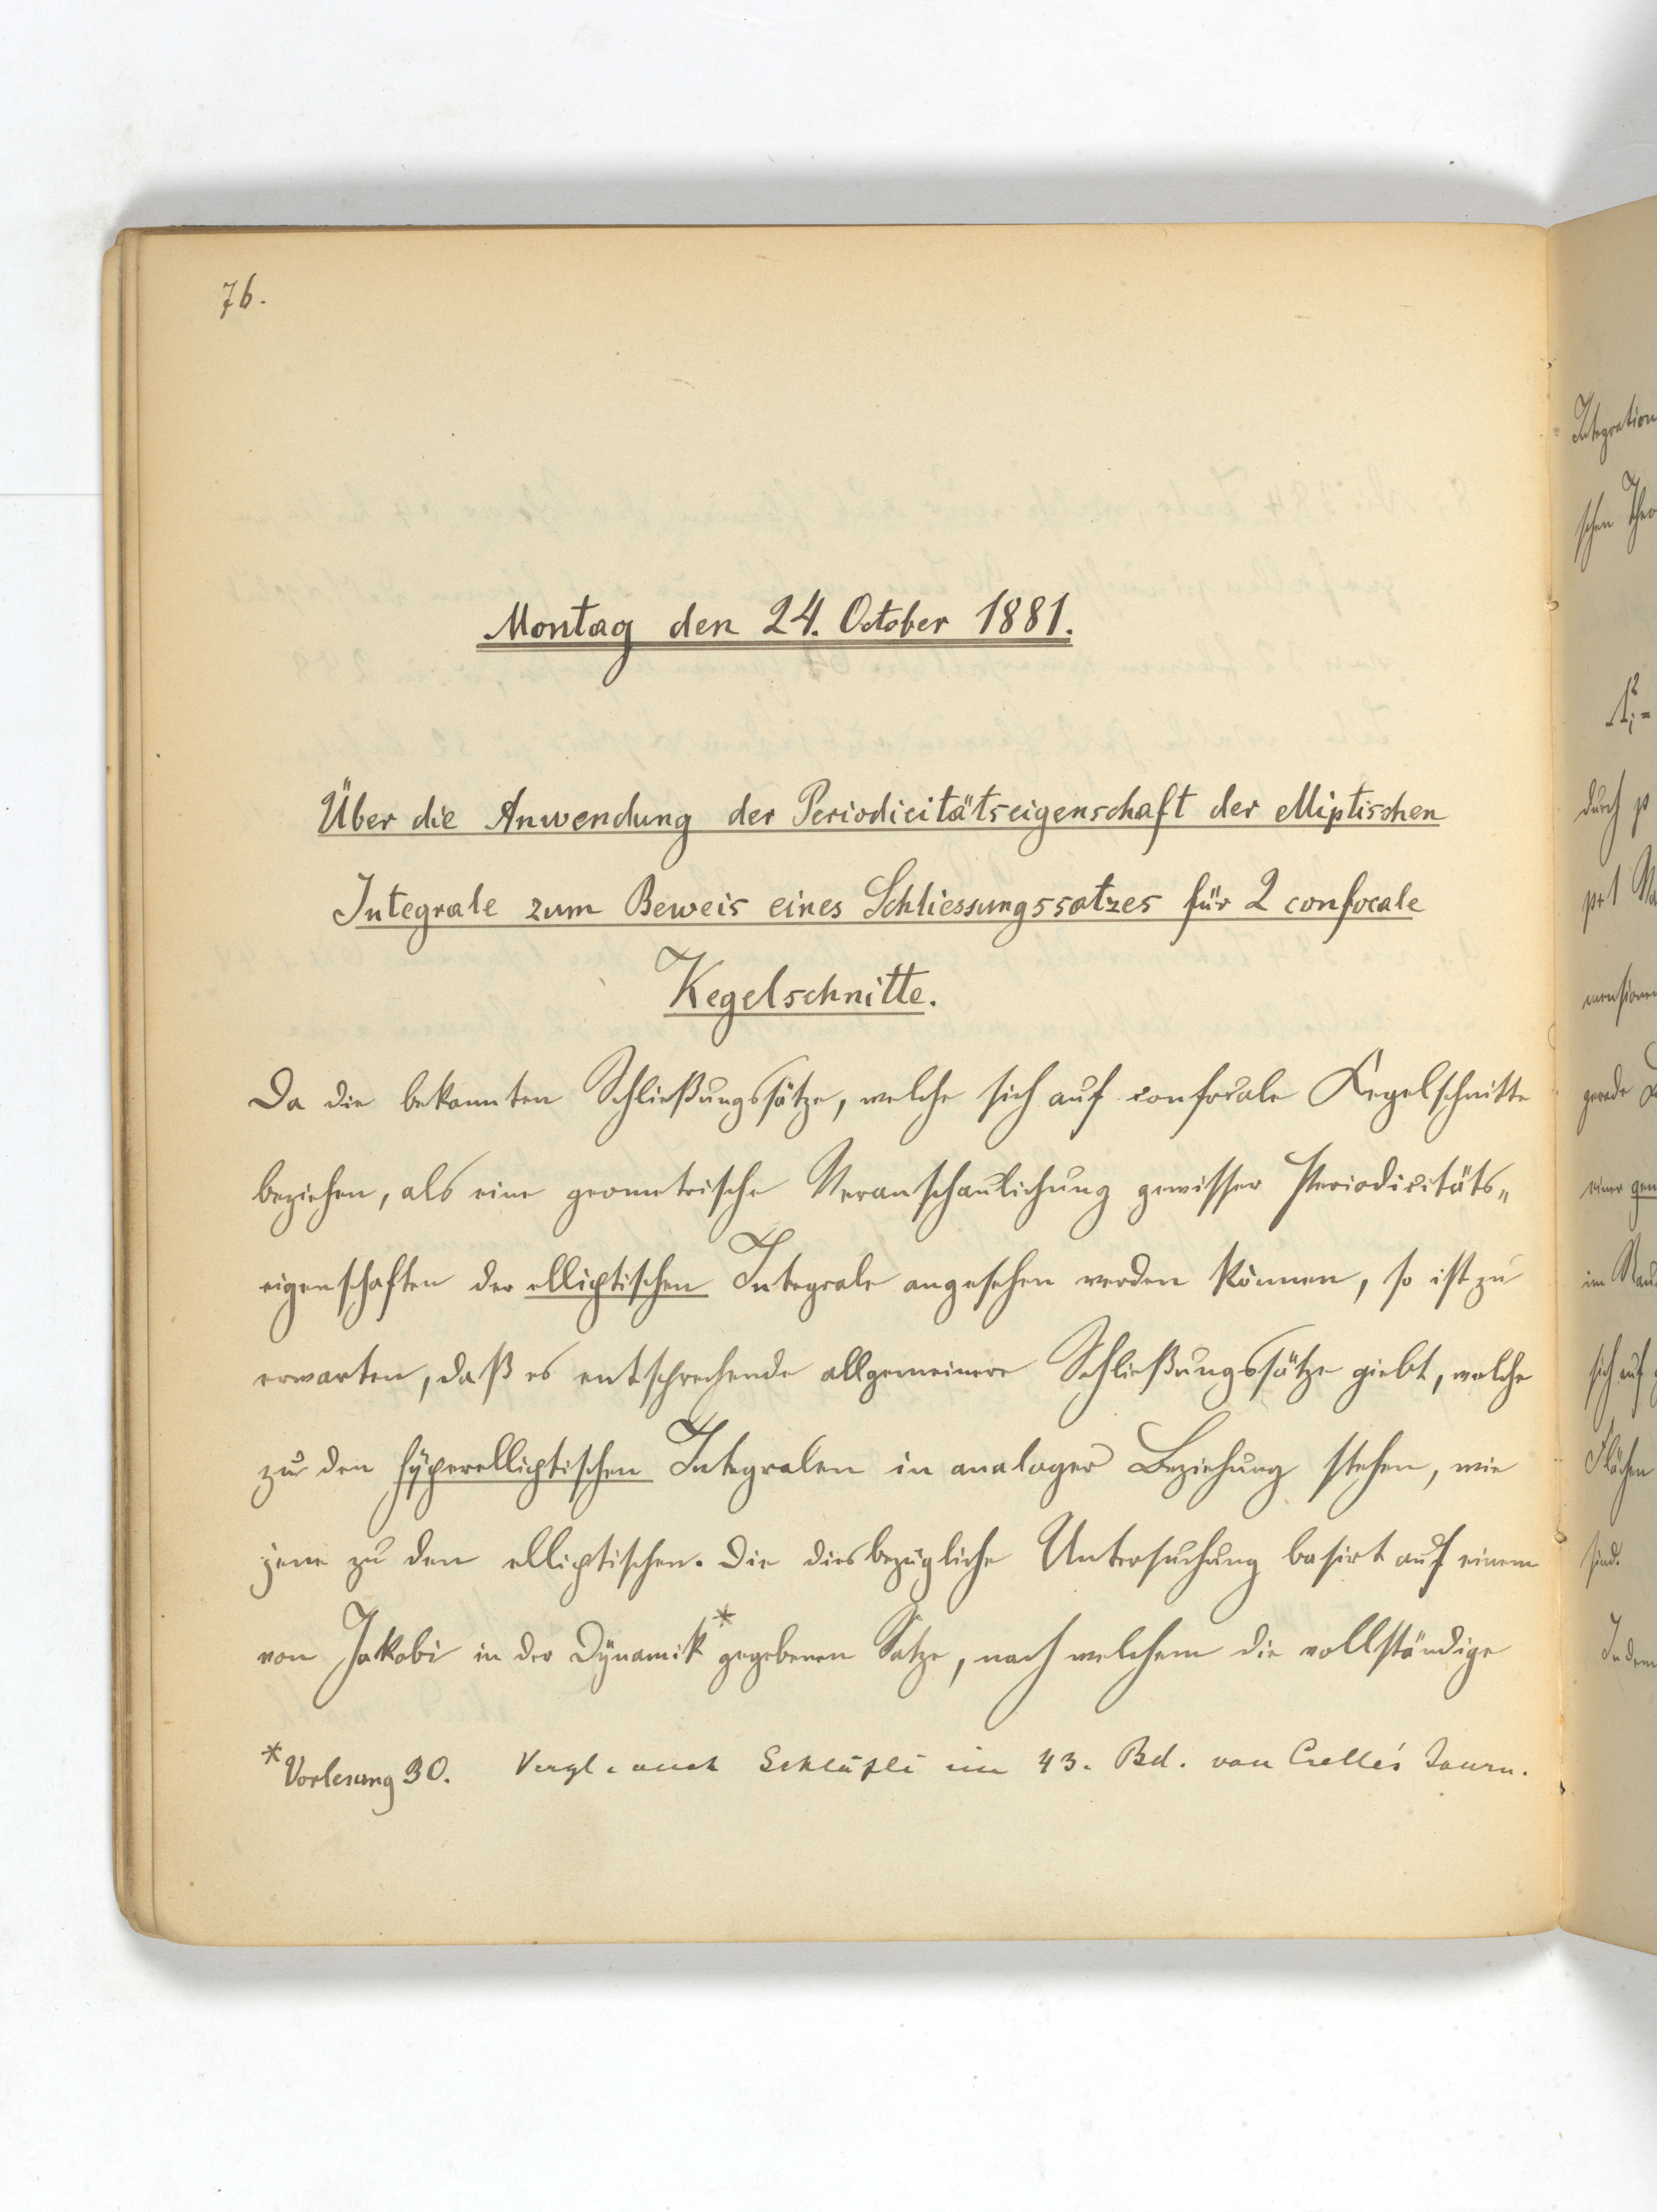 76.
Montag den 24. October 1881.
Über die Anwendung der Periodicitätseigenschaft der elliptischen
Integrale zum Beweis eines Schliessungssatzes für 2 confocale
Kegelschnitte.
Da die bekannten Schließungssätze, welche sich auf confocale Kegelschnitte
beziehen, als eine geometrische Veranschaulichung gewisser Periodicitäts-
eigenschaften der elliptischen Integrale angesehen werden können, so ist zu
erwarten, daß es entsprechende allgemeinere Schließungssätze giebt, welche
zu den hyperelliptischen Integralen in analoger Beziehung stehen, wie
jene zu den elliptischen. Die diesbezügliche Untersuchung basirt auf einem
von Jakobi in der Dynamik* gegebenen Satze, nach welchem die vollständige
*Vorlesung 30. Vergl. auch Schläfli im 43. Bd. von Crelle's Journ.
Integration
schen Theo
durch p
p+1 Va
mensionen
gerade
einer gem
im Rau
sich auf g
Flächen
sind.
Indem